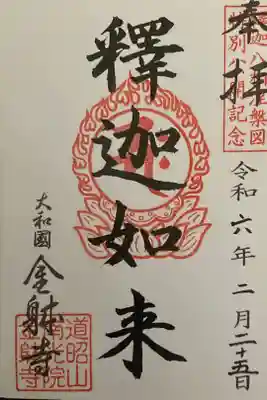 奉拝
特別公開記念
令和六年二月二十五日
釋迦如来
大和國
金躰寺
道昭山